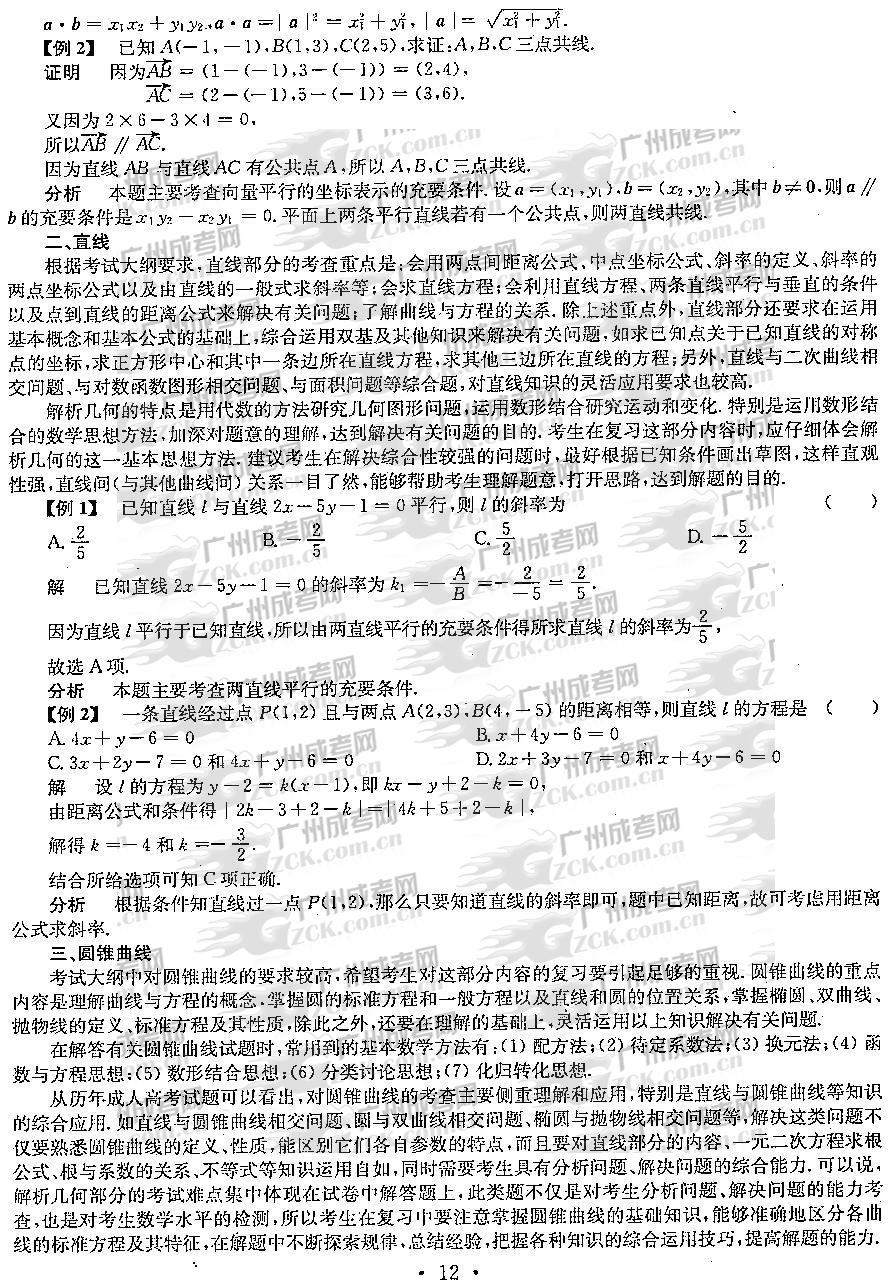 a·b=x₁x₂+y₁y₂,a·a=|a|²=x₁²+y₁²,|a|=√(x₁²+y₁²).
【例2】 已知A(-1,-1),B(1,3),C(2,5),求证:A,B,C三点共线.
证明 因为AB→=(1-(-1),3-(-1))=(2,4),
AC→=(2-(-1),5-(-1))=(3,6).
又因为2×6-3×4=0,
所以AB→∥AC→.
因为直线AB与直线AC有公共点A,所以A,B,C三点共线.
分析 本题主要考查向量平行的坐标表示的充要条件.设a=(x₁,y₁),b=(x₂,y₂),其中b≠0,则a∥
b的充要条件是x₁y₂-x₂y₁=0.平面上两条平行直线若有一个公共点,则两直线共线.
二、直线
根据考试大纲要求,直线部分的考查重点是:会用两点间距离公式、中点坐标公式、斜率的定义、斜率的
两点坐标公式以及由直线的一般式求斜率等;会求直线方程;会利用直线方程、两条直线平行与垂直的条件
以及点到直线的距离公式来解决有关问题;了解曲线与方程的关系.除上述重点外,直线部分还要求在运用
基本概念和基本公式的基础上,综合运用双基及其他知识来解决有关问题,如求已知点关于已知直线的对称
点的坐标,求正方形中心和其中一条边所在直线方程,求其他三边所在直线的方程;另外,直线与二次曲线相
交问题、与对数函数图形相交问题、与面积问题等综合题,对直线知识的灵活应用要求也较高.
解析几何的特点是用代数的方法研究几何图形问题,运用数形结合研究运动和变化.特别是运用数形结
合的数学思想方法,加深对题意的理解,达到解决有关问题的目的.考生在复习这部分内容时,应仔细体会解
析几何的这一基本思想方法.建议考生在解决综合性较强的问题时,最好根据已知条件画出草图,这样直观
性强,直线间(与其他曲线间)关系一目了然,能够帮助考生理解题意,打开思路,达到解题的目的.
【例1】 已知直线l与直线2x-5y-1=0平行,则l的斜率为 ( )
A. 2/5 B. -2/5 C. 5/2 D. -5/2
解 已知直线2x-5y-1=0的斜率为k₁=-A/B=-2/-5=2/5.
因为直线l平行于已知直线,所以由两直线平行的充要条件得所求直线l的斜率为2/5,
故选A项.
分析 本题主要考查两直线平行的充要条件.
【例2】 一条直线经过点P(1,2)且与两点A(2,3),B(4,-5)的距离相等,则直线l的方程是 ( )
A. 4x+y-6=0 B. x+4y-6=0
C. 3x+2y-7=0和4x+y-6=0 D. 2x+3y-7=0和x+4y-6=0
解 设l的方程为y-2=k(x-1),即kx-y+2-k=0,
由距离公式和条件得|2k-3+2-k|=|4k+5+2-k|,
解得k=-4和k=-3/2.
结合所给选项可知C项正确.
分析 根据条件知直线过一点P(1,2),那么只要知道直线的斜率即可,题中已知距离,故可考虑用距离
公式求斜率.
三、圆锥曲线
考试大纲中对圆锥曲线的要求较高,希望考生对这部分内容的复习要引起足够的重视.圆锥曲线的重点
内容是理解曲线与方程的概念.掌握圆的标准方程和一般方程以及直线和圆的位置关系,掌握椭圆、双曲线、
抛物线的定义、标准方程及其性质,除此之外,还要在理解的基础上,灵活运用以上知识解决有关问题.
在解答有关圆锥曲线试题时,常用到的基本数学方法有:(1)配方法;(2)待定系数法;(3)换元法;(4)函
数与方程思想;(5)数形结合思想;(6)分类讨论思想;(7)化归转化思想.
从历年成人高考试题可以看出,对圆锥曲线的考查主要侧重理解和应用,特别是直线与圆锥曲线等知识
的综合应用.如直线与圆锥曲线相交问题、圆与双曲线相交问题、椭圆与抛物线相交问题等,解决这类问题不
仅要熟悉圆锥曲线的定义、性质,能区别它们各自参数的特点,而且要对直线部分的内容、一元二次方程求根
公式、根与系数的关系、不等式等知识运用自如,同时需要考生具有分析问题、解决问题的综合能力.可以说,
解析几何部分的考试难点集中体现在试卷中解答题上,此类题不仅是对考生分析问题、解决问题的能力考
查,也是对考生数学水平的检测,所以考生在复习中要注意掌握圆锥曲线的基础知识,能够准确地区分各曲
线的标准方程及其特征,在解题中不断探索规律,总结经验,把握各种知识的综合运用技巧,提高解题的能力.
·12·